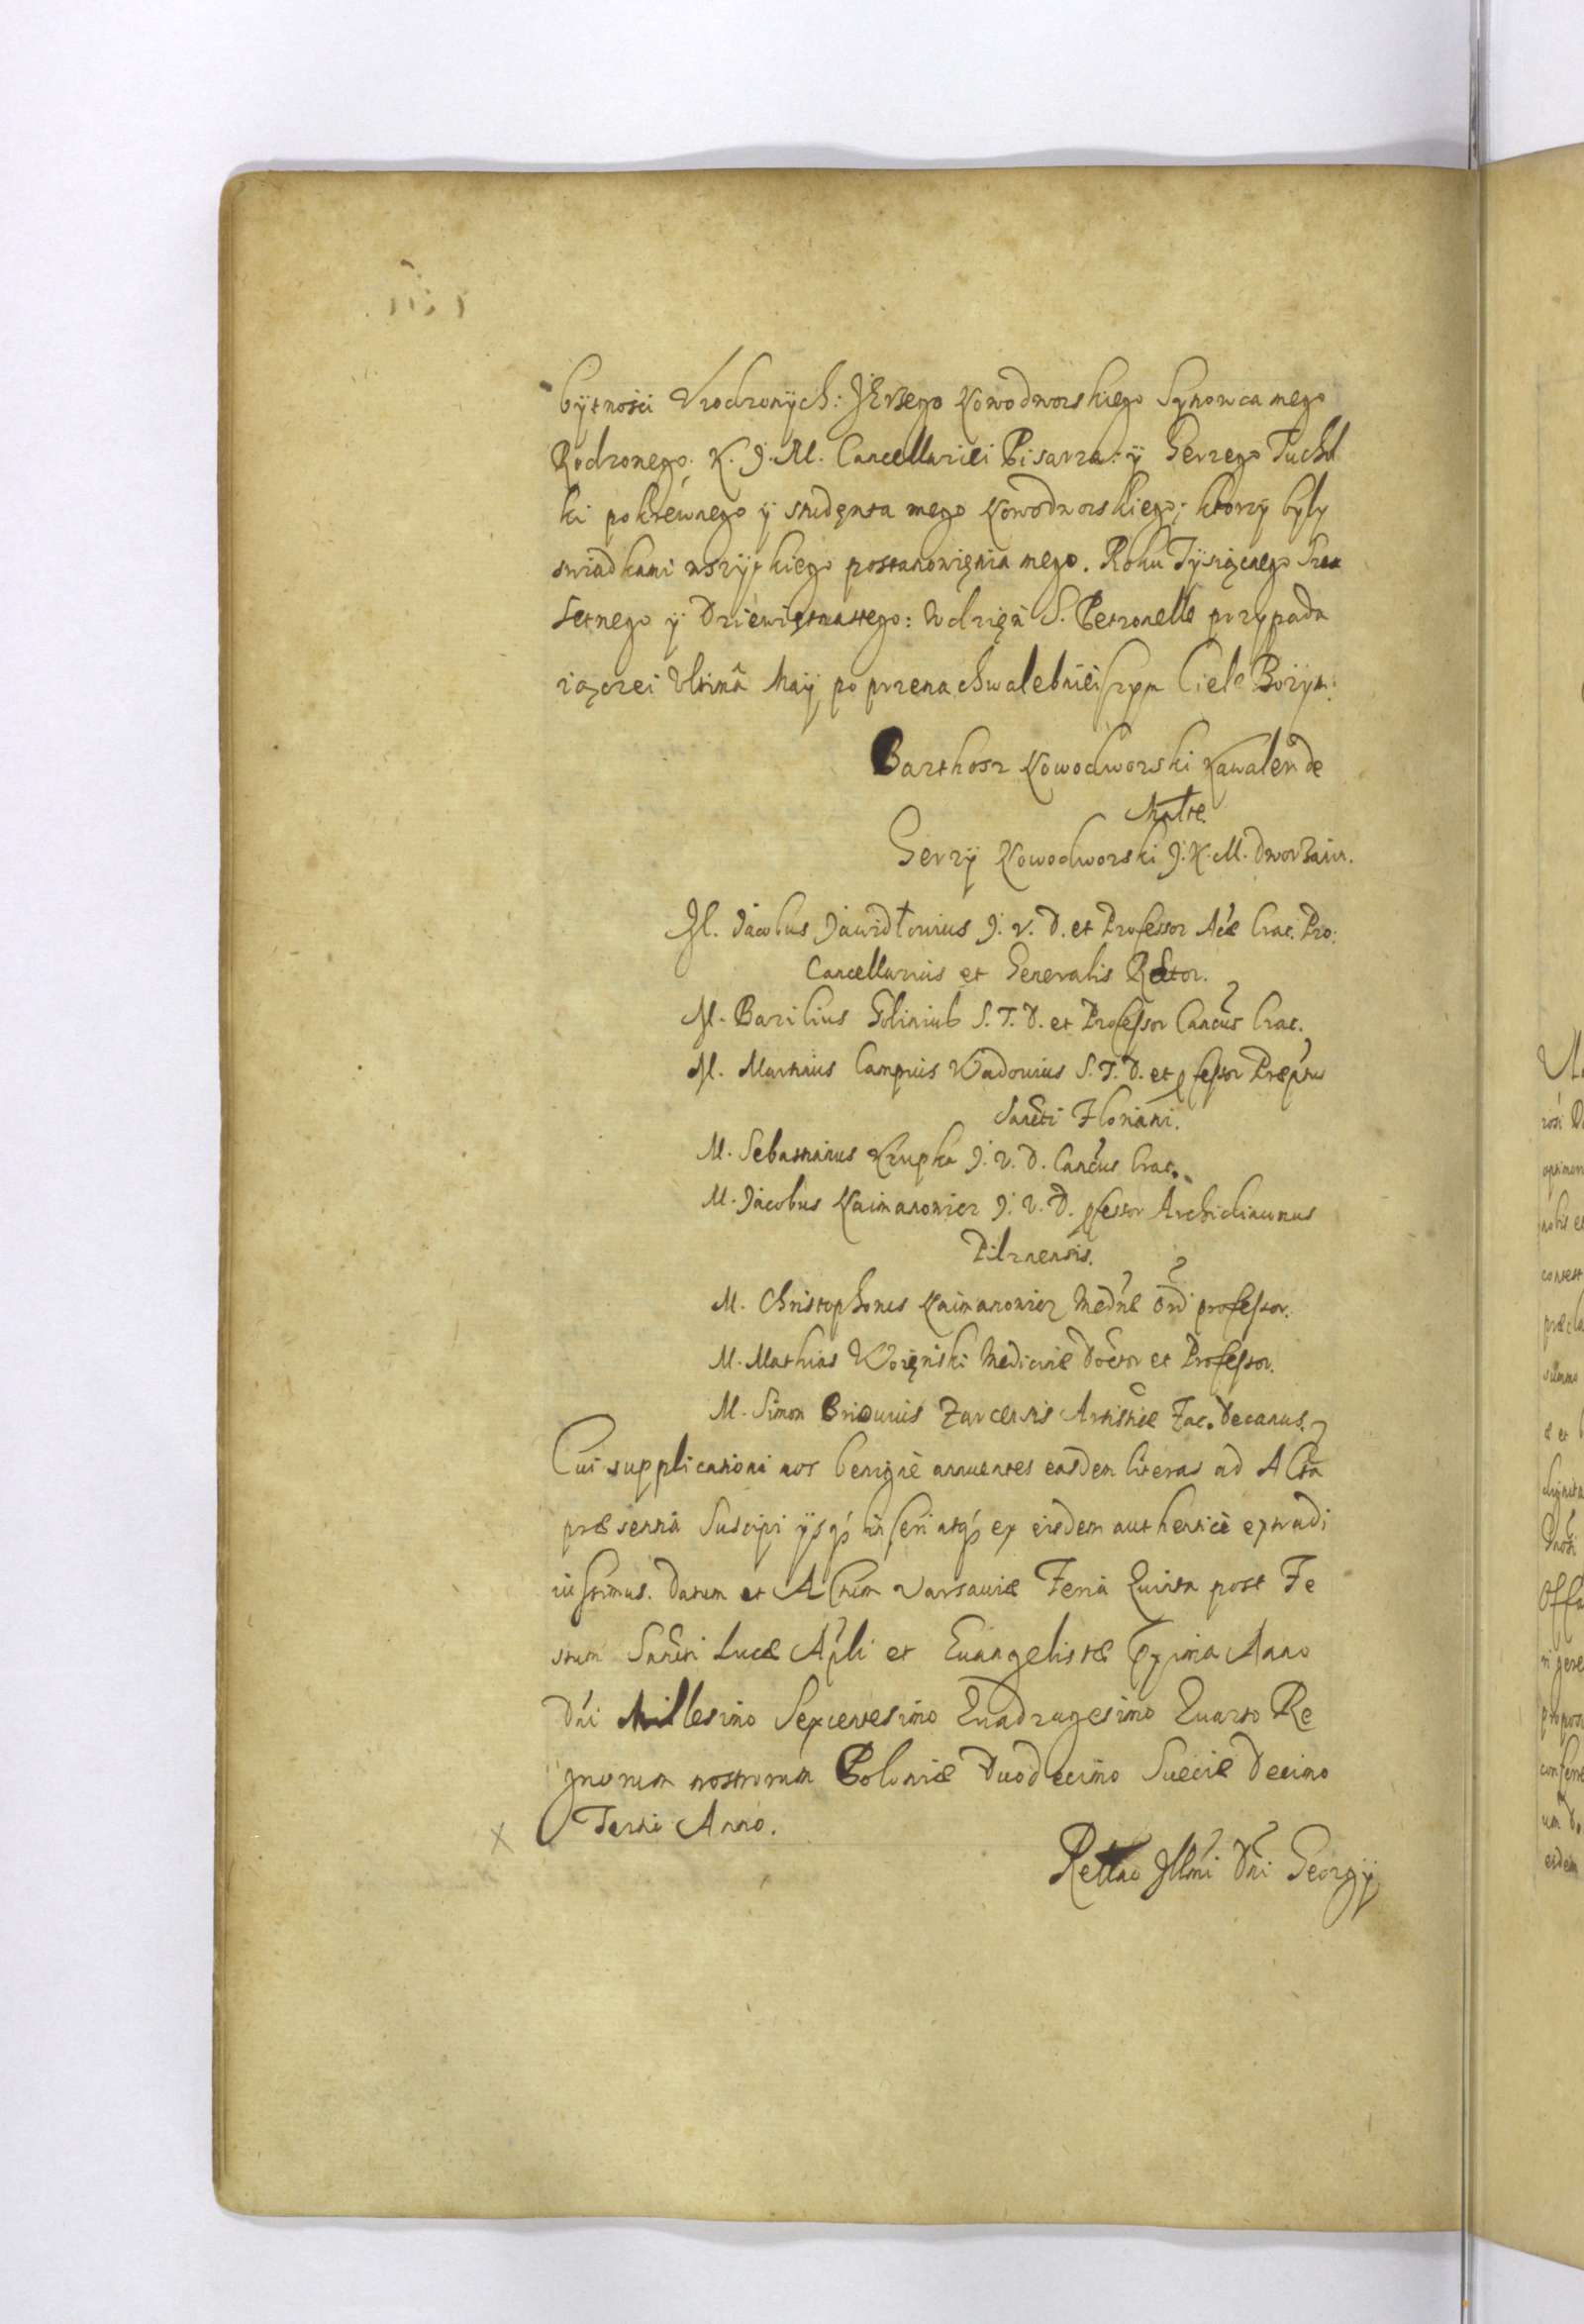 bytnosci Vrodzonych: JErzego Nowodworskiego Synowca mego
Rodzonego. K. J. M. Cancellariei Pisarza: ÿ Gerzego Puchal
ki pokrewnego ÿ studęnta mego Nowodworskiego; ktorzÿ byly
swiadkami wszÿtkiego postanowięnia mego. Roku Tÿsiącnego Szes
setnego ÿ Dziewiętnastego: W dzięń S. Petronelle przypada
iączei Vltimâ Maÿ po przenachwalebnieiszym Ciele Bożym:
Barthosz Nowodworski Kawaler de
Malte.
Gerzÿ Nowodworski J. K. M. dworzanin.
M. Jacobus Janidłouius J. V. D. et Professor Acae Crac. Pro:
Cancellarius et Generalis Rector.
M. Basilius Golinius S. T. D. et Professor Cancus Crac.
M. Martinus Campius Wadouius S. T. D. et pfessor Praeptus
Sancti Floriani.
M. Sebastianus Krupka J. V. D. Cancus Crac.
M. Jacobus Naimanowicz J. V. D. pfessor Archidiaconus
Pilznensis.
M. Christophorus Naimanowicz Mednae Ord professor.
M. Mathias Woięnski Medicinae Doctor et Professor.
M. Simon Zarcensis Artisticae Fac. Decanus.
Cui supplicationi nos benignè annuentes easdem literas ad Acta
praesentia Suscipi ÿsq inseri atq ex eisdem authenticè extradi
iussimus. Datum et Actum Varsauiae Feria Quinta post Fe
stum Sancti Lucae Apli et Euangelistae pxima Anno
Dni Millesimo Sexcentesimo Quadragesimo Quarto Re
gnorum nostrorum Poloniae Duodecimo Sueciae Decimo
Tertio Anno.
Rettno Illmi Dni Georgÿ